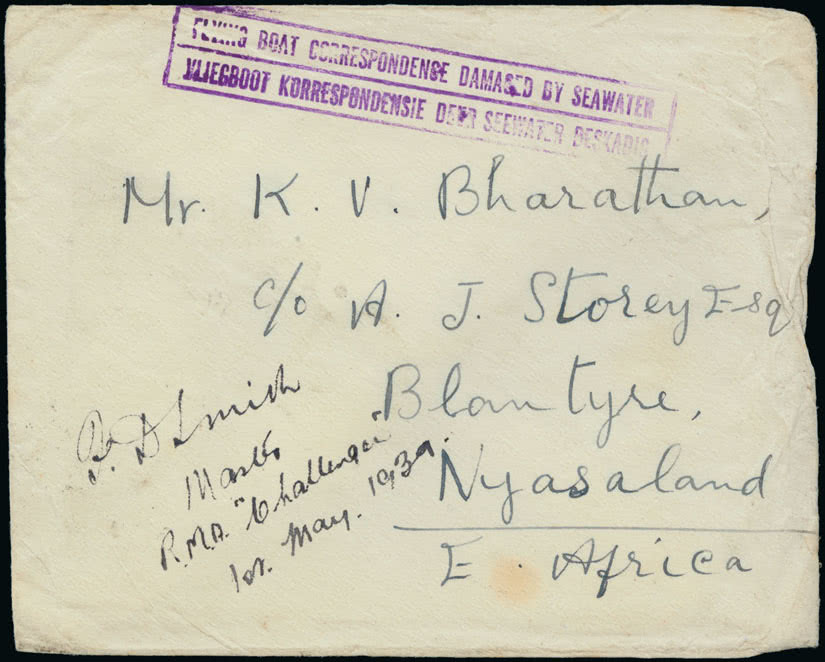 FLYING BOAT CORRESPONDENSE DAMAGED BY SEAWATER
VLIEGBOOT KORRESPONDENSIE DEER SEEWATER BESKADIG
Mr. K. V. Bharathan,
c/o A. J. Storey Esq
Blantyre,
Nyasaland
E. Africa
D Smith
Master
R.M.A. "Challenger"
1st. May. 1939.